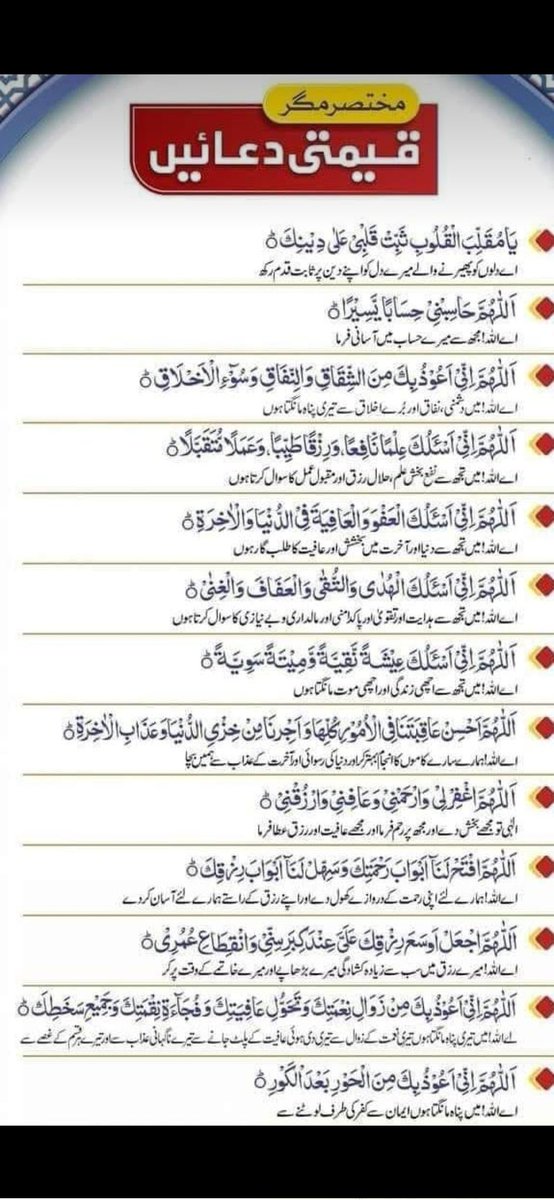 مختصر مگر
قیمتی دعائیں
يَا مُقَلِّبَ الْقُلُوبِ ثَبِّتْ قَلْبِيْ عَلٰى دِيْنِكَ
اے دلوں کو پھیرنے والے میرے دل کو اپنے دین پر ثابت قدم رکھ
اَللّٰهُمَّ حَاسِبْنِيْ حِسَابًا يَّسِيْرًا
اے اللہ! مجھ سے میرے حساب میں آسانی فرما
اَللّٰهُمَّ اِنِّيْ اَعُوْذُ بِكَ مِنَ الشِّقَاقِ وَالنِّفَاقِ وَسُوْٓءِ الْاَخْلَاقِ
اے اللہ! میں دشمنی، نفاق اور بُرے اخلاق سے تیری پناہ مانگتا ہوں
اَللّٰهُمَّ اِنِّيْ اَسْئَلُكَ عِلْمًا نَّافِعًا، وَرِزْقًا طَيِّبًا، وَعَمَلًا مُّتَقَبَّلًا
اے اللہ! میں تجھ سے نفع بخش علم، حلال رزق اور مقبول عمل کا سوال کرتا ہوں
اَللّٰهُمَّ اِنِّيْ اَسْئَلُكَ الْعَفْوَ وَالْعَافِيَةَ فِي الدُّنْيَا وَالْاٰخِرَةِ
اے اللہ! میں تجھ سے دنیا اور آخرت میں بخشش اور عافیت کا طلب گار ہوں
اَللّٰهُمَّ اِنِّيْ اَسْئَلُكَ الْهُدٰى وَالتُّقٰى وَالْعَفَافَ وَالْغِنٰى
اے اللہ! میں تجھ سے ہدایت اور تقویٰ اور پاکدامنی اور مالداری و بے نیازی کا سوال کرتا ہوں
اَللّٰهُمَّ اِنِّيْ اَسْئَلُكَ عِيْشَةً نَّقِيَّةً وَّمِيْتَةً سَوِيَّةً
اے اللہ! میں تجھ سے اچھی زندگی اور اچھی موت مانگتا ہوں
اَللّٰهُمَّ اَحْسِنْ عَاقِبَتَنَا فِي الْاُمُوْرِ كُلِّهَا وَاَجِرْنَا مِنْ خِزْيِ الدُّنْيَا وَعَذَابِ الْاٰخِرَةِ
اے اللہ! ہمارے سارے کاموں کا انجام بہتر کر اور دنیا کی رسوائی اور آخرت کے عذاب سے ہمیں بچا
اَللّٰهُمَّ اغْفِرْلِيْ وَارْحَمْنِيْ وَعَافِنِيْ وَارْزُقْنِيْ
الٰہی تو مجھے بخش دے اور مجھ پر رحم فرما اور مجھے عافیت اور رزق عطا فرما
اَللّٰهُمَّ افْتَحْ لَنَا اَبْوَابَ رَحْمَتِكَ وَسَهِّلْ لَنَا اَبْوَابَ رِزْقِكَ
اے اللہ! ہمارے لئے اپنی رحمت کے دروازے کھول دے اور اپنے رزق کے راستے ہمارے لئے آسان کردے
اَللّٰهُمَّ اجْعَلْ اَوْسَعَ رِزْقِكَ عَلَيَّ عِنْدَ كِبَرِ سِنِّيْ وَانْقِطَاعِ عُمُرِيْ
اے اللہ! میرے رزق میں سب سے زیادہ کشادگی میرے بڑھاپے اور میرے خاتمے کے وقت پر کر
اَللّٰهُمَّ اِنِّيْ اَعُوْذُ بِكَ مِنْ زَوَالِ نِعْمَتِكَ وَتَحَوُّلِ عَافِيَتِكَ وَفُجَاءَةِ نِقْمَتِكَ وَجَمِيْعِ سَخَطِكَ
اے اللہ! میں تیری پناہ مانگتا ہوں تیری نعمت کے زوال سے تیری دی ہوئی عافیت کے پلٹ جانے سے تیرے ناگہانی عذاب سے اور تیرے ہر قسم کے غصے سے
اَللّٰهُمَّ اِنِّيْ اَعُوْذُ بِكَ مِنَ الْحَوْرِ بَعْدَ الْكَوْرِ
اے اللہ! میں پناہ مانگتا ہوں ایمان سے کفر کی طرف لوٹنے سے